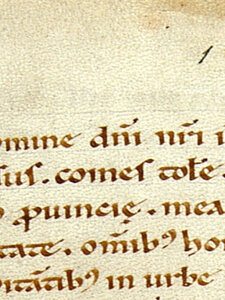 omine dn̄i nr̄i i
sus. comes tol̄e.
ꝓuincię. mea
tate. om̄ibꝰ ho
itātibꝰ in urbe